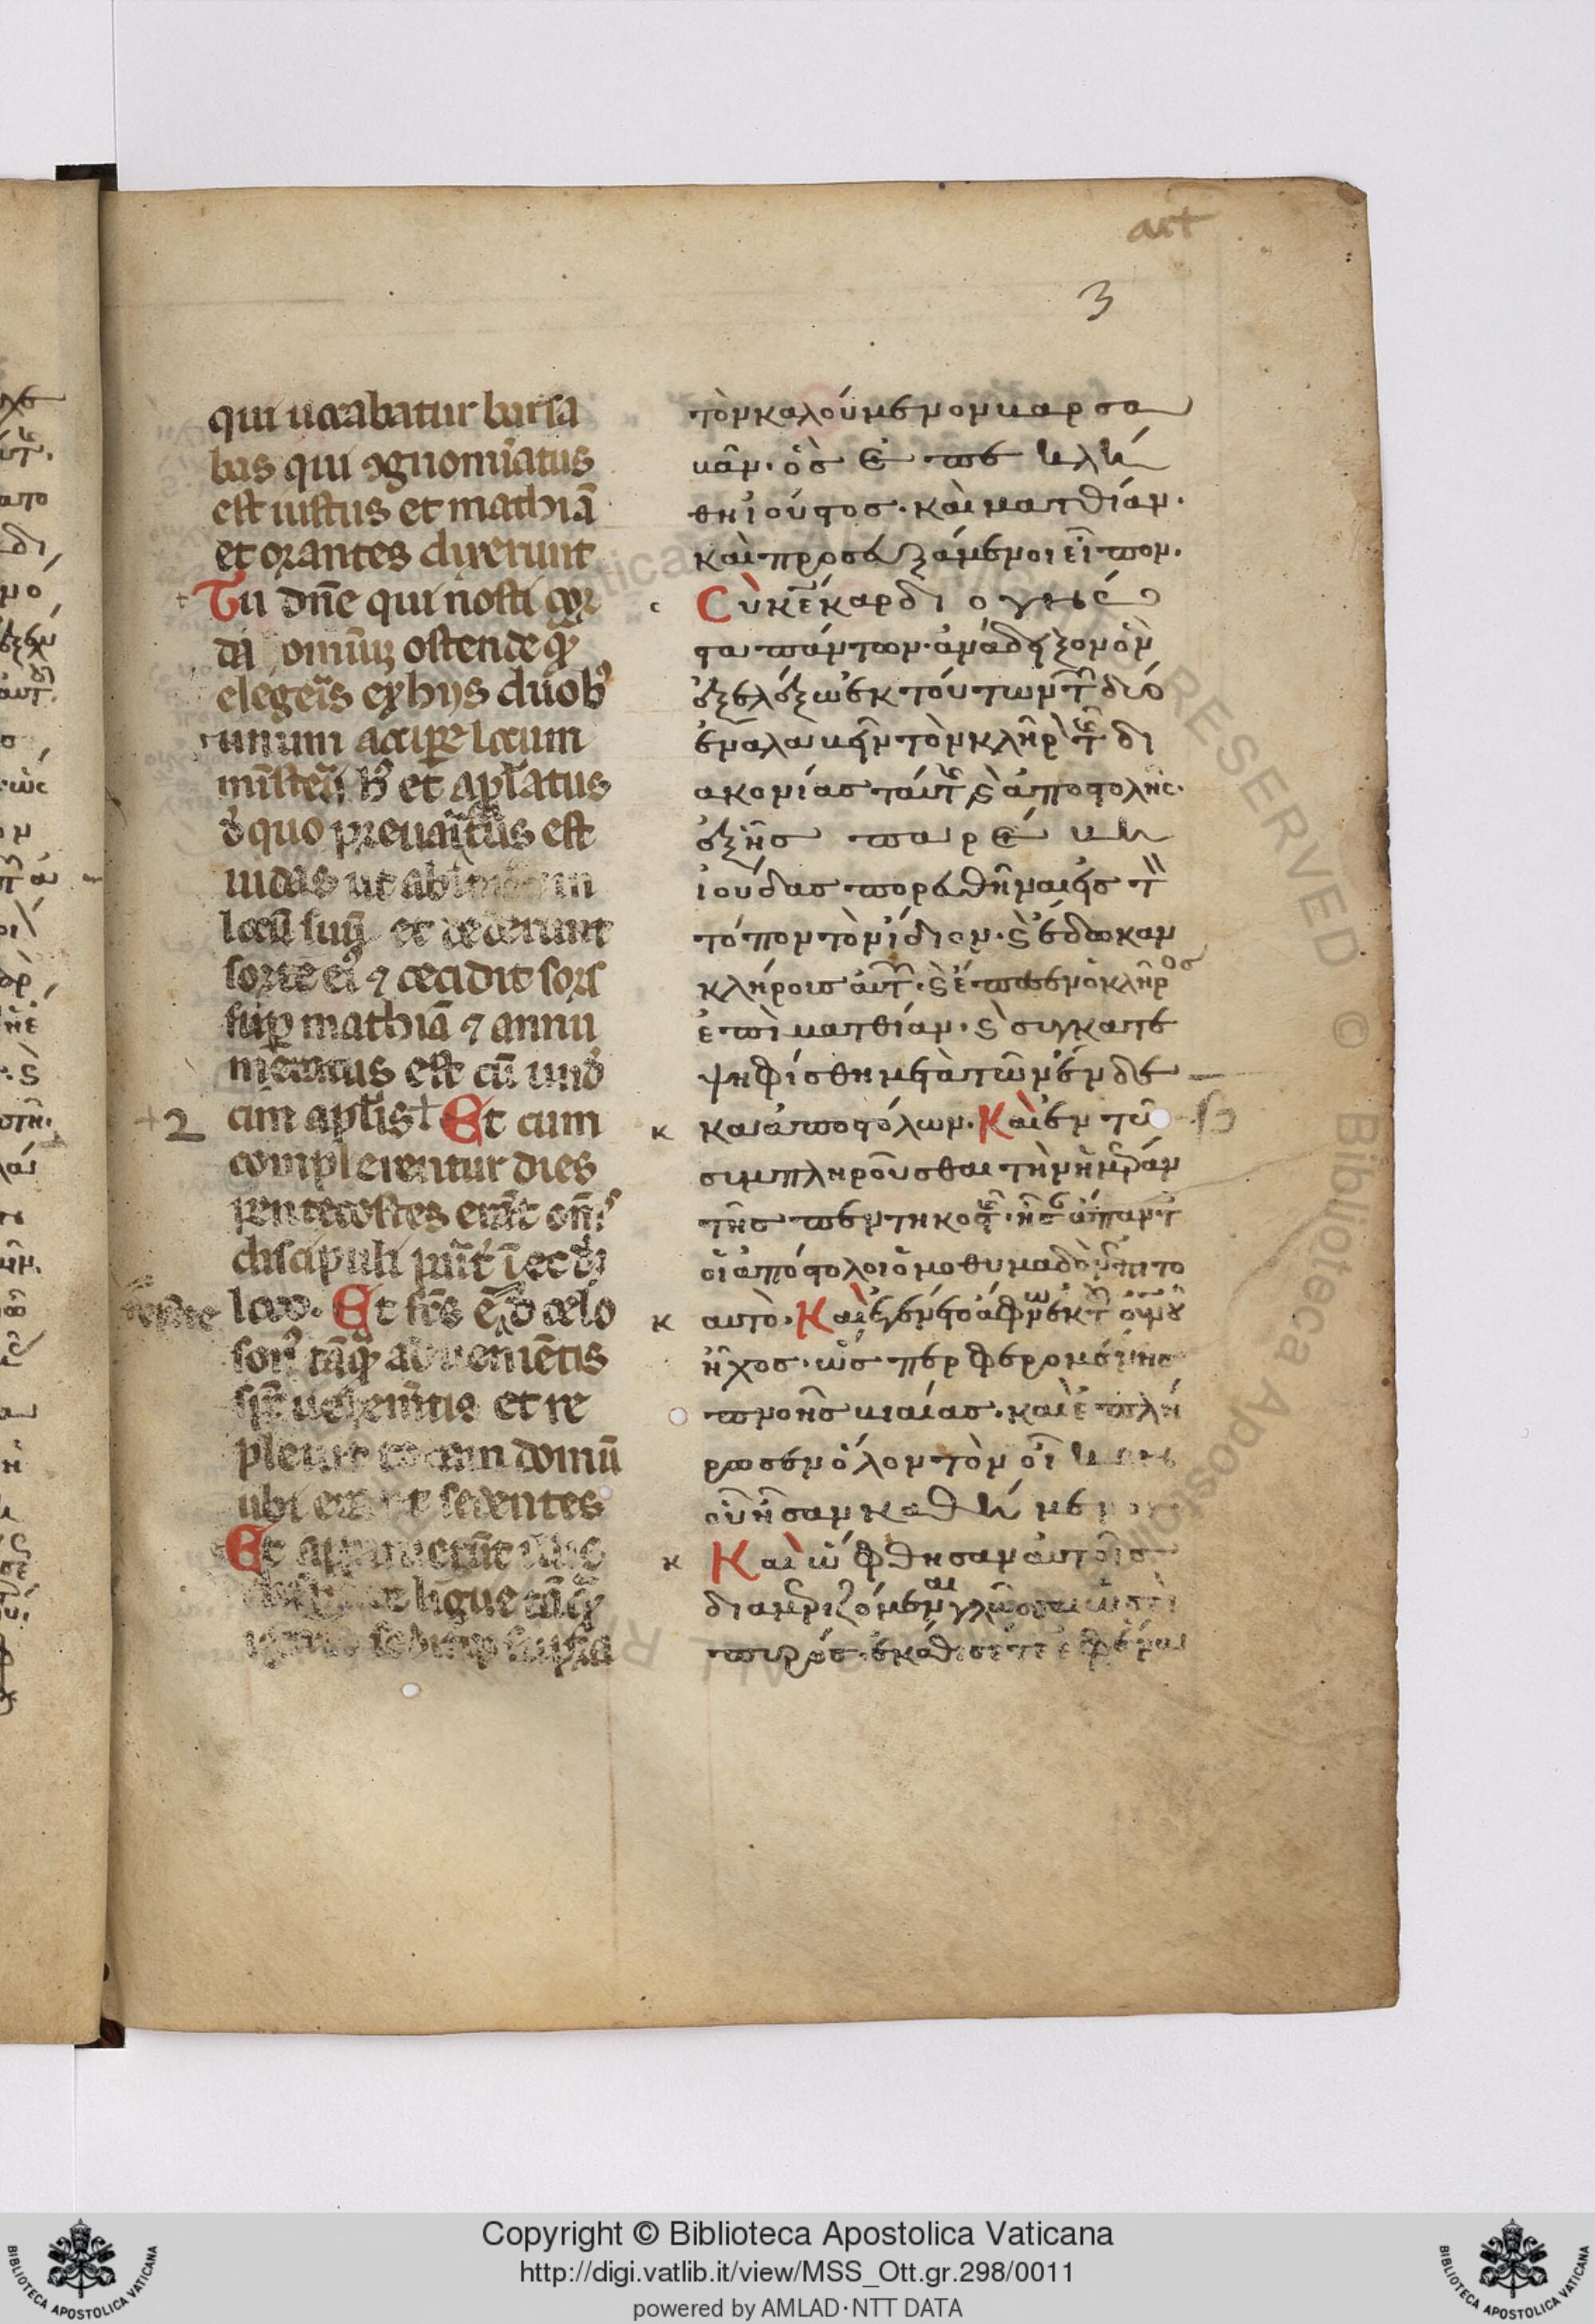 art
3
qui uocabatur barsa
bas qui ꝯgnomiatus
est iustus et mathiā
et orantes dixerunt
Tu dn̄e qui nosti cor
da omiuꝫ ostende quē
elegeris ex hijs duobꝰ
unum accipe locum
misterij hꝰ et aplatus
d quo preuaricatus est
iudas ut abiret in
locū suū et dederunt
sorte eis ⁊ cecidit sors
sup mathiā ⁊ annu
meratus est cū unde
2 cim aplis Et cum
complerentur dies
pentecostes erāt om̄s
discipuli parit̄ ī eodē
loco. Et fcs ē d celo
sonꝰ tāquā aduenientis
spr̄ uehemētis et re
pleuit totam domū
ubi erant sedentes
Et apparuerūt illis
ligue tāquā
ignis seditqꝫ supra
τὸν καλούμενον βαρσα
βᾶν· ὃσ ἐπεκλή
θη ἰούστοσ· καὶ ματθίαν·
καὶ προσευξάμενοι εἶπον·
Σὺ κε̄ καρδιογνῶ
στα πάντων· ἀνάδειξον ὃν
ἐξελέξω ἐκ τούτων τ̑ δύο
ἕνα λαβεῖν τὸν κλῆρ τ̑ δι
ακονίασ ταύτ ϛ ἀποστολῆς·
ἐξ ἧσ παρέβη
ἰούδασ πορευθῆναι εἰσ τ
τόπον τὸν ἴδιον· ϛ ἔδωκαν
κλήρουσ αὐτ· ϛ ἔπεσεν ὁ κλῆροσ
ἐπὶ ματθίαν· ϛ συγκατε
ψηφίσθη μετὰ τῶν ἕνδε
κα ἀποστόλων. Καὶ ἐν τῶ
κ
συμπληροῦσθαι τὴν ἡμέραν
τῆσ πεντηκοστ· ἦσ ἅπαντ
οἱ ἀπόστολοι ὁμοθυμαδὸν ἐπιτο
αυτὸ· Καὶ ἐγένετο ἄφνω ἐκ τ οὐνοῦ
κ
ἦχος· ὥσπερ φερομένησ
πνοῆσ βιαίασ· καὶ ἐπλή
ρωσεν ὅλον τὸν οἶκον
οὗ ἦσαν καθήμενοι
κ
Καὶ ὤφθησαν αὐτοῖσ
διαμεριζόμεναι γλῶσσαι ὡσεὶ
πυρόσ· ἐκάθισέ τε ἐφ ἕνα
Copyright © Biblioteca Apostolica Vaticana
http://digi.vatlib.it/view/MSS_Ott.gr.298/0011
powered by AMLAD·NTT DATA
BIBLIOTECA APOSTOLICA VATICANA
BIBLIOTECA APOSTOLICA VATICANA